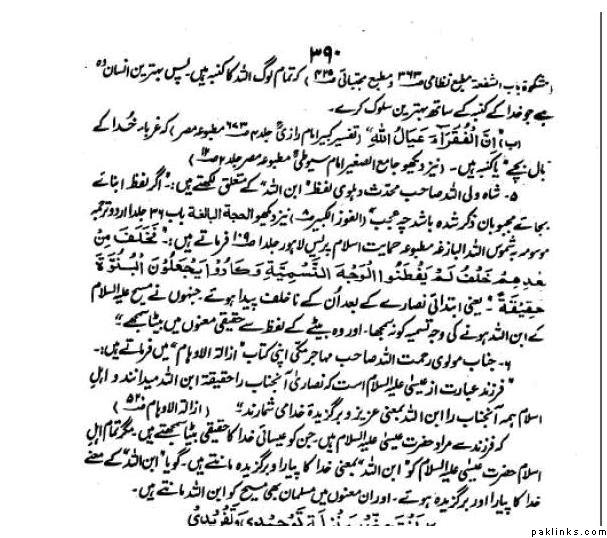 ۳۹۰
(مشکوٰۃ باب الشفقة مطبع نظامی ص۳۶۳ و مطبع مجتبائی ص۴۲۵) کہ تمام لوگ اللہ کا کنبہ ہیں۔ پس بہترین انسان وہ
ہے جو خدا کے کنبہ کے ساتھ بہترین سلوک کرے۔
(ب) اِنَّ الْفُقَرَآءَ عَیَالُ اللهِ" (تفسیر کبیر امام رازیؒ جلد ۴ ص۶۷۳ مطبوعہ مصر) کہ غرباء خُدا کے
بال بچے یا کنبہ ہیں۔ (نیز دیکھو جامع الصغیر امام سیوطیؒ مطبوعہ مصر جلد ۲ ص۱۲)
۵۔ شاہ ولی اللہ صاحب محدّث دہلوی لفظ "ابن اللہ" کے متعلق لکھتے ہیں:۔ "اگر لفظ ابناء
بجائے محبوبان ذکر شدہ باشد چہ عجب" (الفوز الکبیر ص۸) نیز دیکھو الحجة البالغة باب ۳۶ جلد ۱ اردو ترجمہ
موسومہ بہ شموس اللہ البازغہ مطبوعہ حمایت اسلام پریس لاہور جلد ۱ ص۱۰۹ فرماتے ہیں:۔ "فَخَلَفَ مِنْ
بَعْدِهِمْ خَلْفٌ لَمْ یَفْطَنُوا الْوَجْهَ التَّسْمِیَةِ وَکَادُوْا یَجْعَلُوْنَ الْبُنُوَّةَ
حَقِیْقَةً"۔ یعنی ابتدائی نصاریٰ کے بعد اُن کے ناخلف پیدا ہوئے۔ جنہوں نے مسیح علیہ السلام
کے ابن اللہ ہونے کی وجہ تسمیہ کو نہ سمجھا۔ اور وہ بیٹے کے لفظ سے حقیقی معنوں میں بیٹا سمجھے"
۶۔ جناب مولوی رحمت اللہ صاحب مہاجر مکی اپنی کتاب "ازالۃ الاوہام" میں فرماتے ہیں:۔
"فرزند عبارت از عیسیٰ علیہ السلام است کہ نصاریٰ آنجناب را حقیقۃ ابن اللہ میدانند و اہل
اسلام ہمہ آنجناب را ابن اللہ بمعنی عزیز و برگزیدہ خدا می شمارند" (ازالۃ الاوہام ص۵۲۰)
کہ فرزند سے مراد حضرت عیسیٰ علیہ السلام ہیں۔ جن کو عیسائی خدا کا حقیقی بیٹا سمجھتے ہیں۔ مگر تمام اہل
اسلام حضرت عیسیٰ علیہ السلام کو "ابن اللہ" بمعنی خدا کا پیارا و برگزیدہ مانتے ہیں۔ گویا "ابن اللہ" کے معنے
خدا کا پیارا اور برگزیدہ ہوئے۔ اور ان معنوں میں مسلمان بھی مسیح کو ابن اللہ مانتے ہیں۔
paklinks.com